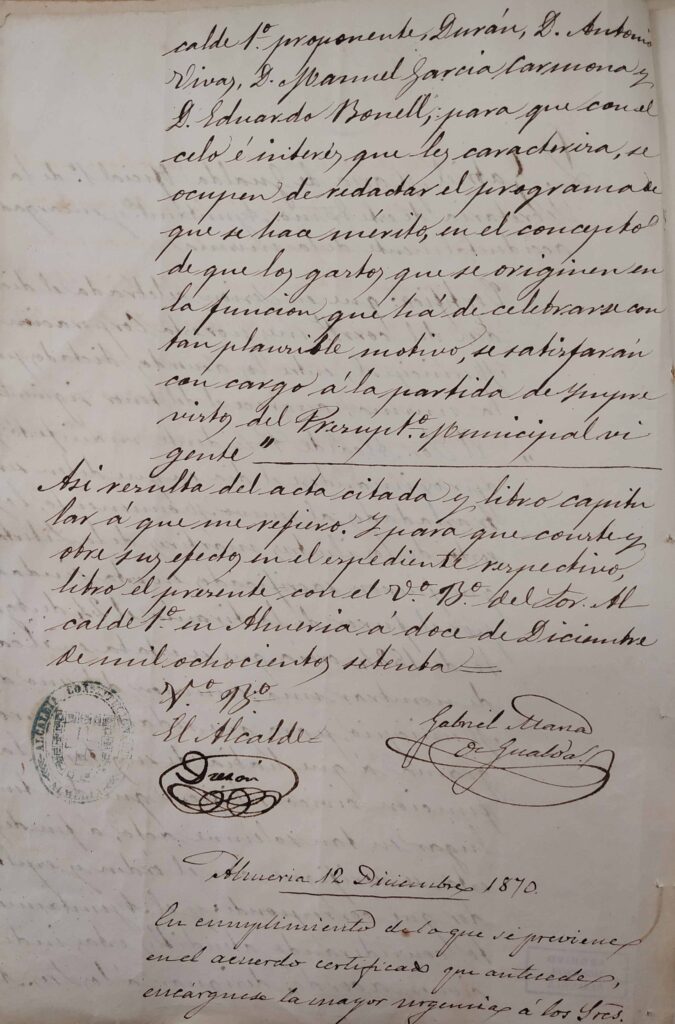 calde 1.º proponente, Durán, D. Antonio
Vivas, D. Manuel Garcia Carmona y
D. Eduardo Bonell; para que con el
celo é interés que les caracteriza, se
ocupen de redactar el programa de
que se hace mérito, en el concepto
de que los gastos que se originen en
la funcion que há de celebrarse con
tan plausible motivo, se satisfarán
con cargo á la partida de Impre
vistos del Presupto. Municipal vi
gente"
Asi resulta del acta citada y libro capitu
lar á que me refiero. Y para que conste y
obre sus efectos en el espediente respectivo,
libro el presente con el V.º B.º del Sor. Al
calde 1.º en Almeria á doce de Diciembre
de mil ochocientos setenta=
V.º B.º
El Alcalde=
Gabriel Maria
de Gualda
ALCALDIA CONSTITUCIONAL
ALMERIA
Almeria 12 Diciembre 1870.
En cumplimiento de lo que se previene
en el acuerdo certificado que antecede,
encárguese la mayor urgencia á los Sres.